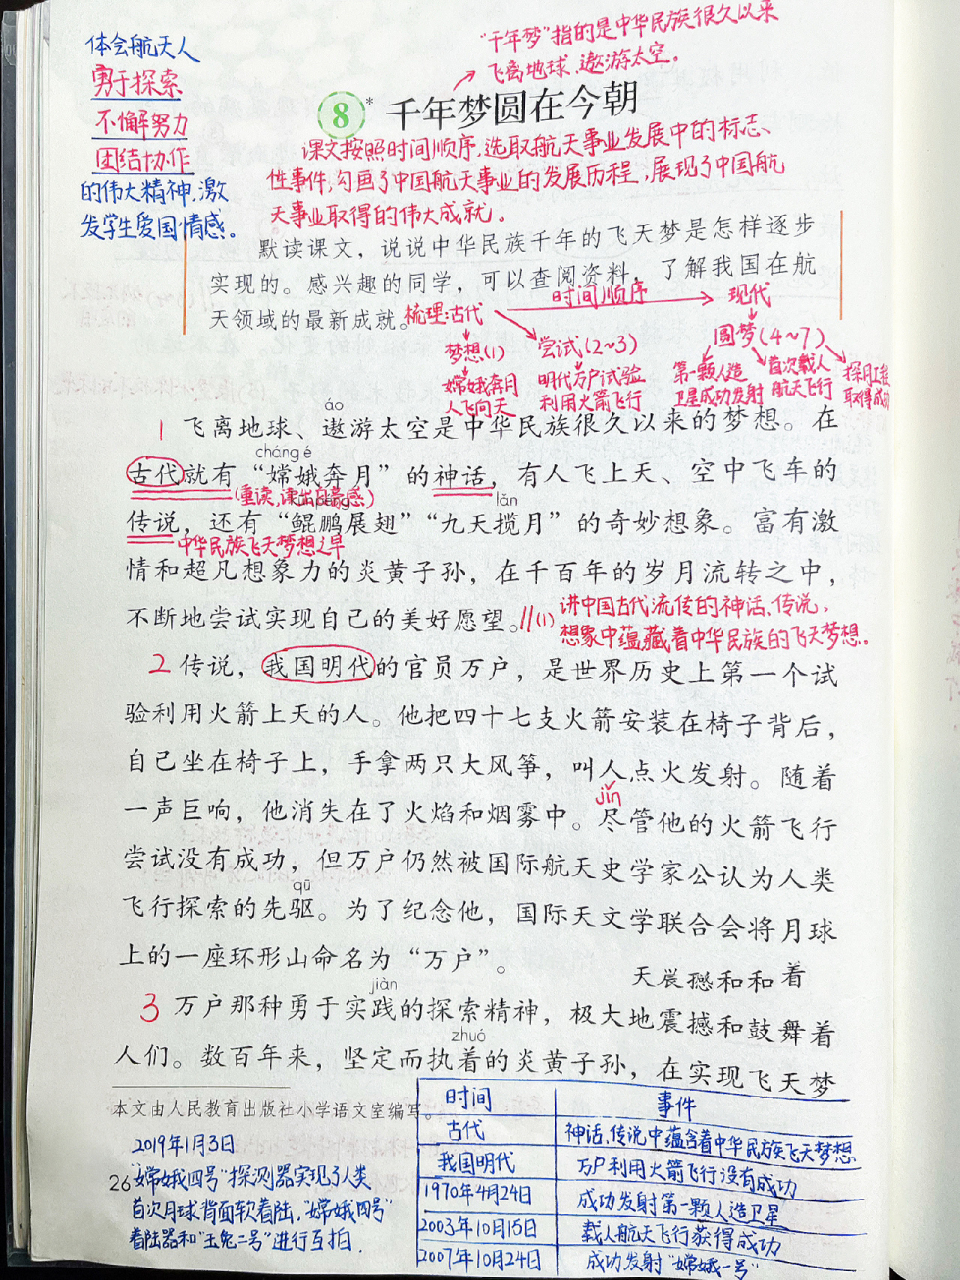 体会航天人
勇于探索
不懈努力
团结协作
的伟大精神，激
发学生爱国情感。
"千年梦"指的是中华民族很久以来
飞离地球、遨游太空。
8* 千年梦圆在今朝
课文按照时间顺序，选取航天事业发展中的标志、
性事件，勾画了中国航天事业的发展历程，展现了中国航
天事业取得的伟大成就。
默读课文，说说中华民族千年的飞天梦是怎样逐步
实现的。感兴趣的同学，可以查阅资料，了解我国在航
天领域的最新成就。
梳理：古代 时间顺序 现代
梦想(1) 尝试(2~3) 圆梦(4~7)
嫦娥奔月
人飞向天
明代万户试验
利用火箭飞行
第一颗人造
卫星成功发射
首次载人
航天飞行
探月工程
取得成功
áo
1 飞离地球、遨游太空是中华民族很久以来的梦想。在
cháng é
古代就有“嫦娥奔月”的神话，有人飞上天、空中飞车的
(重读，读出自豪感)
kūn péng lǎn
传说，还有“鲲鹏展翅”“九天揽月”的奇妙想象。富有激
中华民族飞天梦想之早
情和超凡想象力的炎黄子孙，在千百年的岁月流转之中，
不断地尝试实现自己的美好愿望。
//(1) 讲中国古代流传的神话、传说，
想象中蕴藏着中华民族的飞天梦想。
2 传说，我国明代的官员万户，是世界历史上第一个试
验利用火箭上天的人。他把四十七支火箭安装在椅子背后，
自己坐在椅子上，手拿两只大风筝，叫人点火发射。随着
jǐn
一声巨响，他消失在了火焰和烟雾中。尽管他的火箭飞行
尝试没有成功，但万户仍然被国际航天史学家公认为人类
qū
飞行探索的先驱。为了纪念他，国际天文学联合会将月球
上的一座环形山命名为“万户”。
jiàn
3 万户那种勇于实践的探索精神，极大地震撼和鼓舞着
zhuó
人们。数百年来，坚定而执着的炎黄子孙，在实现飞天梦
本文由人民教育出版社小学语文室编写。
26
2019年1月3日
"嫦娥四号"探测器实现了人类
首次月球背面软着陆，"嫦娥四号"
着陆器和"玉兔二号"进行互拍
时间 事件
古代 神话、传说中蕴含着中华民族飞天梦想
我国明代 万户利用火箭飞行没有成功
1970年4月24日 成功发射第一颗人造卫星
2003年10月15日 载人航天飞行获得成功
2007年10月24日 成功发射"嫦娥一号"